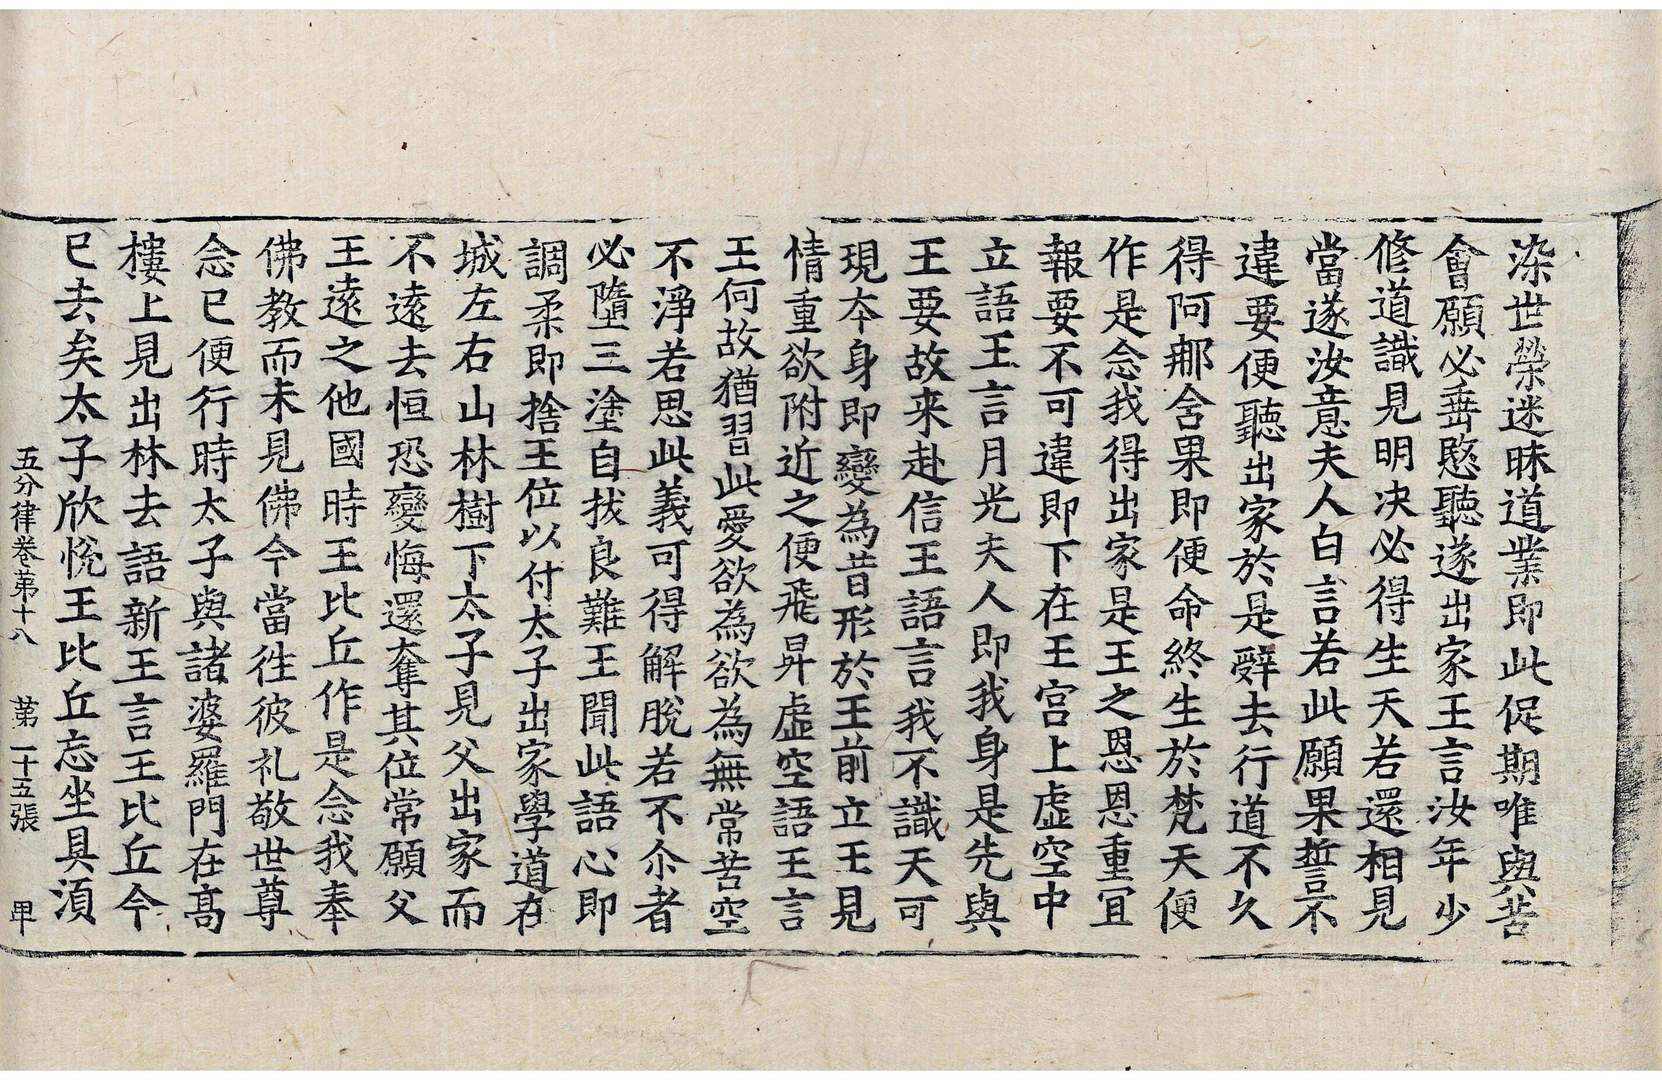 染世榮迷昧道業即此促期唯與苦
會願必垂愍聽遂出家王言汝年少
修道識見明决必得生天若還相見
當遂汝意夫人白言若此願果誓不
違要便聽出家於是辭去行道不久
得阿那舍果即便命終生於梵天便
作是念我得出家是王之恩恩重冝
報要不可違即下在王宮上虛空中
立語王言月光夫人即我身是先與
王要故来赴信王語言我不識天可
現本身即變為昔形於王前立王見
情重欲附近之便飛昇虛空語王言
王何故猶習此愛欲為欲為無常苦空
不淨若思此義可得解脫若不尒者
必墮三塗自拔良難王聞此語心即
調柔即捨王位以付太子出家學道在
城左右山林樹下太子見父出家而
不遠去恒恐變悔還奪其位常願父
王遠之他國時王比丘作是念我奉
佛教而未見佛今當往彼礼敬世尊
念已便行時太子與諸婆羅門在髙
樓上見出林去語新王言王比丘今
已去矣太子欣悅王比丘忘坐具湏
五分律卷苐十八 第二十五張 甲